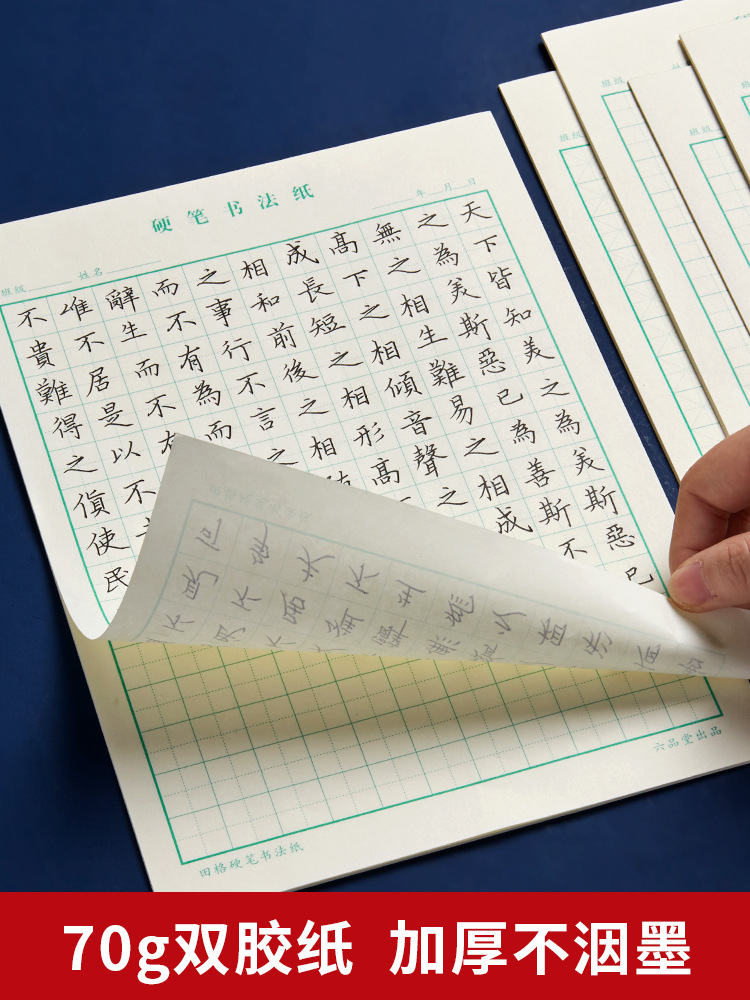 硬笔书法纸
年 月 日
班级 姓名
天下皆知美之為美斯惡已
之為美斯惡已為善斯不
無之相生難易之相成
高下之相傾音聲之
成長短之相形高
相和前後之相
之事行不言之
而不有為而
辭生而不
唯不居是以不
不貴難得之貨使民
田格硬笔书法纸
六品堂出品
班级
班级
班级
70g双胶纸 加厚不洇墨